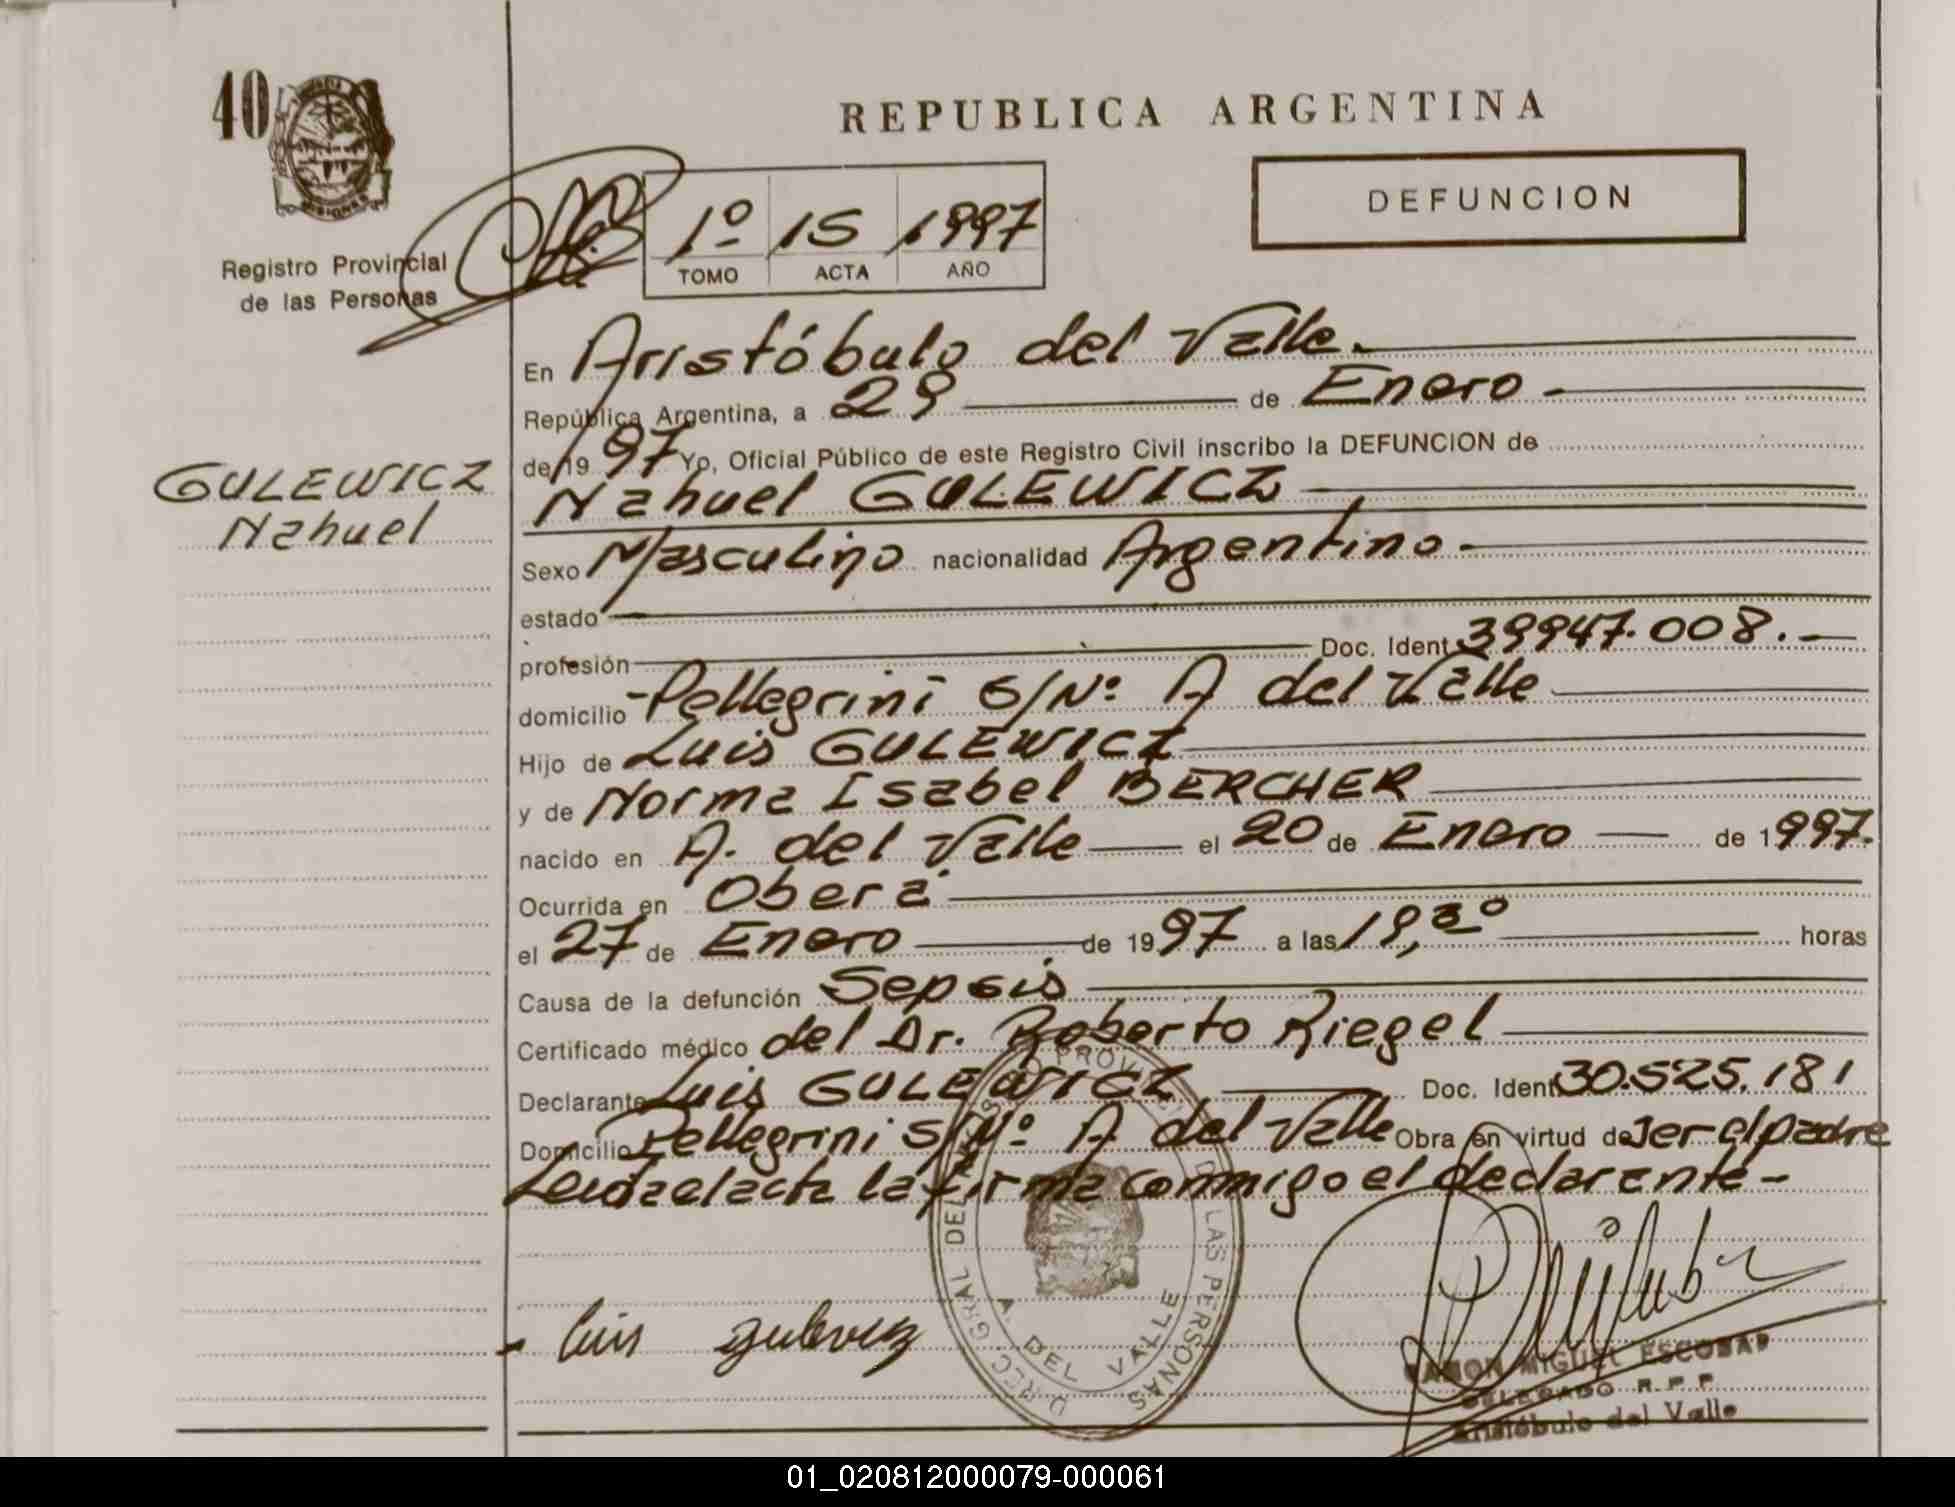 40
REPUBLICA ARGENTINA
DEFUNCION
MISIONES
Registro Provincial
de las Personas
1º 15 1997
TOMO ACTA AÑO
En Aristóbulo del Valle.
República Argentina, a 29 de Enero
de 1997 Yo, Oficial Público de este Registro Civil inscribo la DEFUNCION de
GULEWICZ
Nahuel
Nahuel GULEWICZ
Sexo Masculino nacionalidad Argentino
estado
profesión Doc. Ident 39947.008.
domicilio Pellegrini S/Nº A del Valle
Hijo de Luis GULEWICZ
y de Norma Isabel BERCHER
nacido en A. del Valle el 20 de Enero de 1997.
Ocurrida en Oberá
el 27 de Enero de 1997 a las 19,30 horas
Causa de la defunción Sepsis
Certificado médico del Dr. Roberto Riegel
Declarante Luis GULEWICZ Doc. Ident 30.525.181
Domicilio Pellegrini S/Nº A del Valle Obra en virtud de ser el padre
Leída el acta la firma conmigo el declarante
Luis gulewicz
RAMON MIGUEL ESCOBAR
DELEGADO R.P.P.
Aristóbulo del Valle
LAS PERSONAS
A. DEL VALLE
01_020812000079-000061